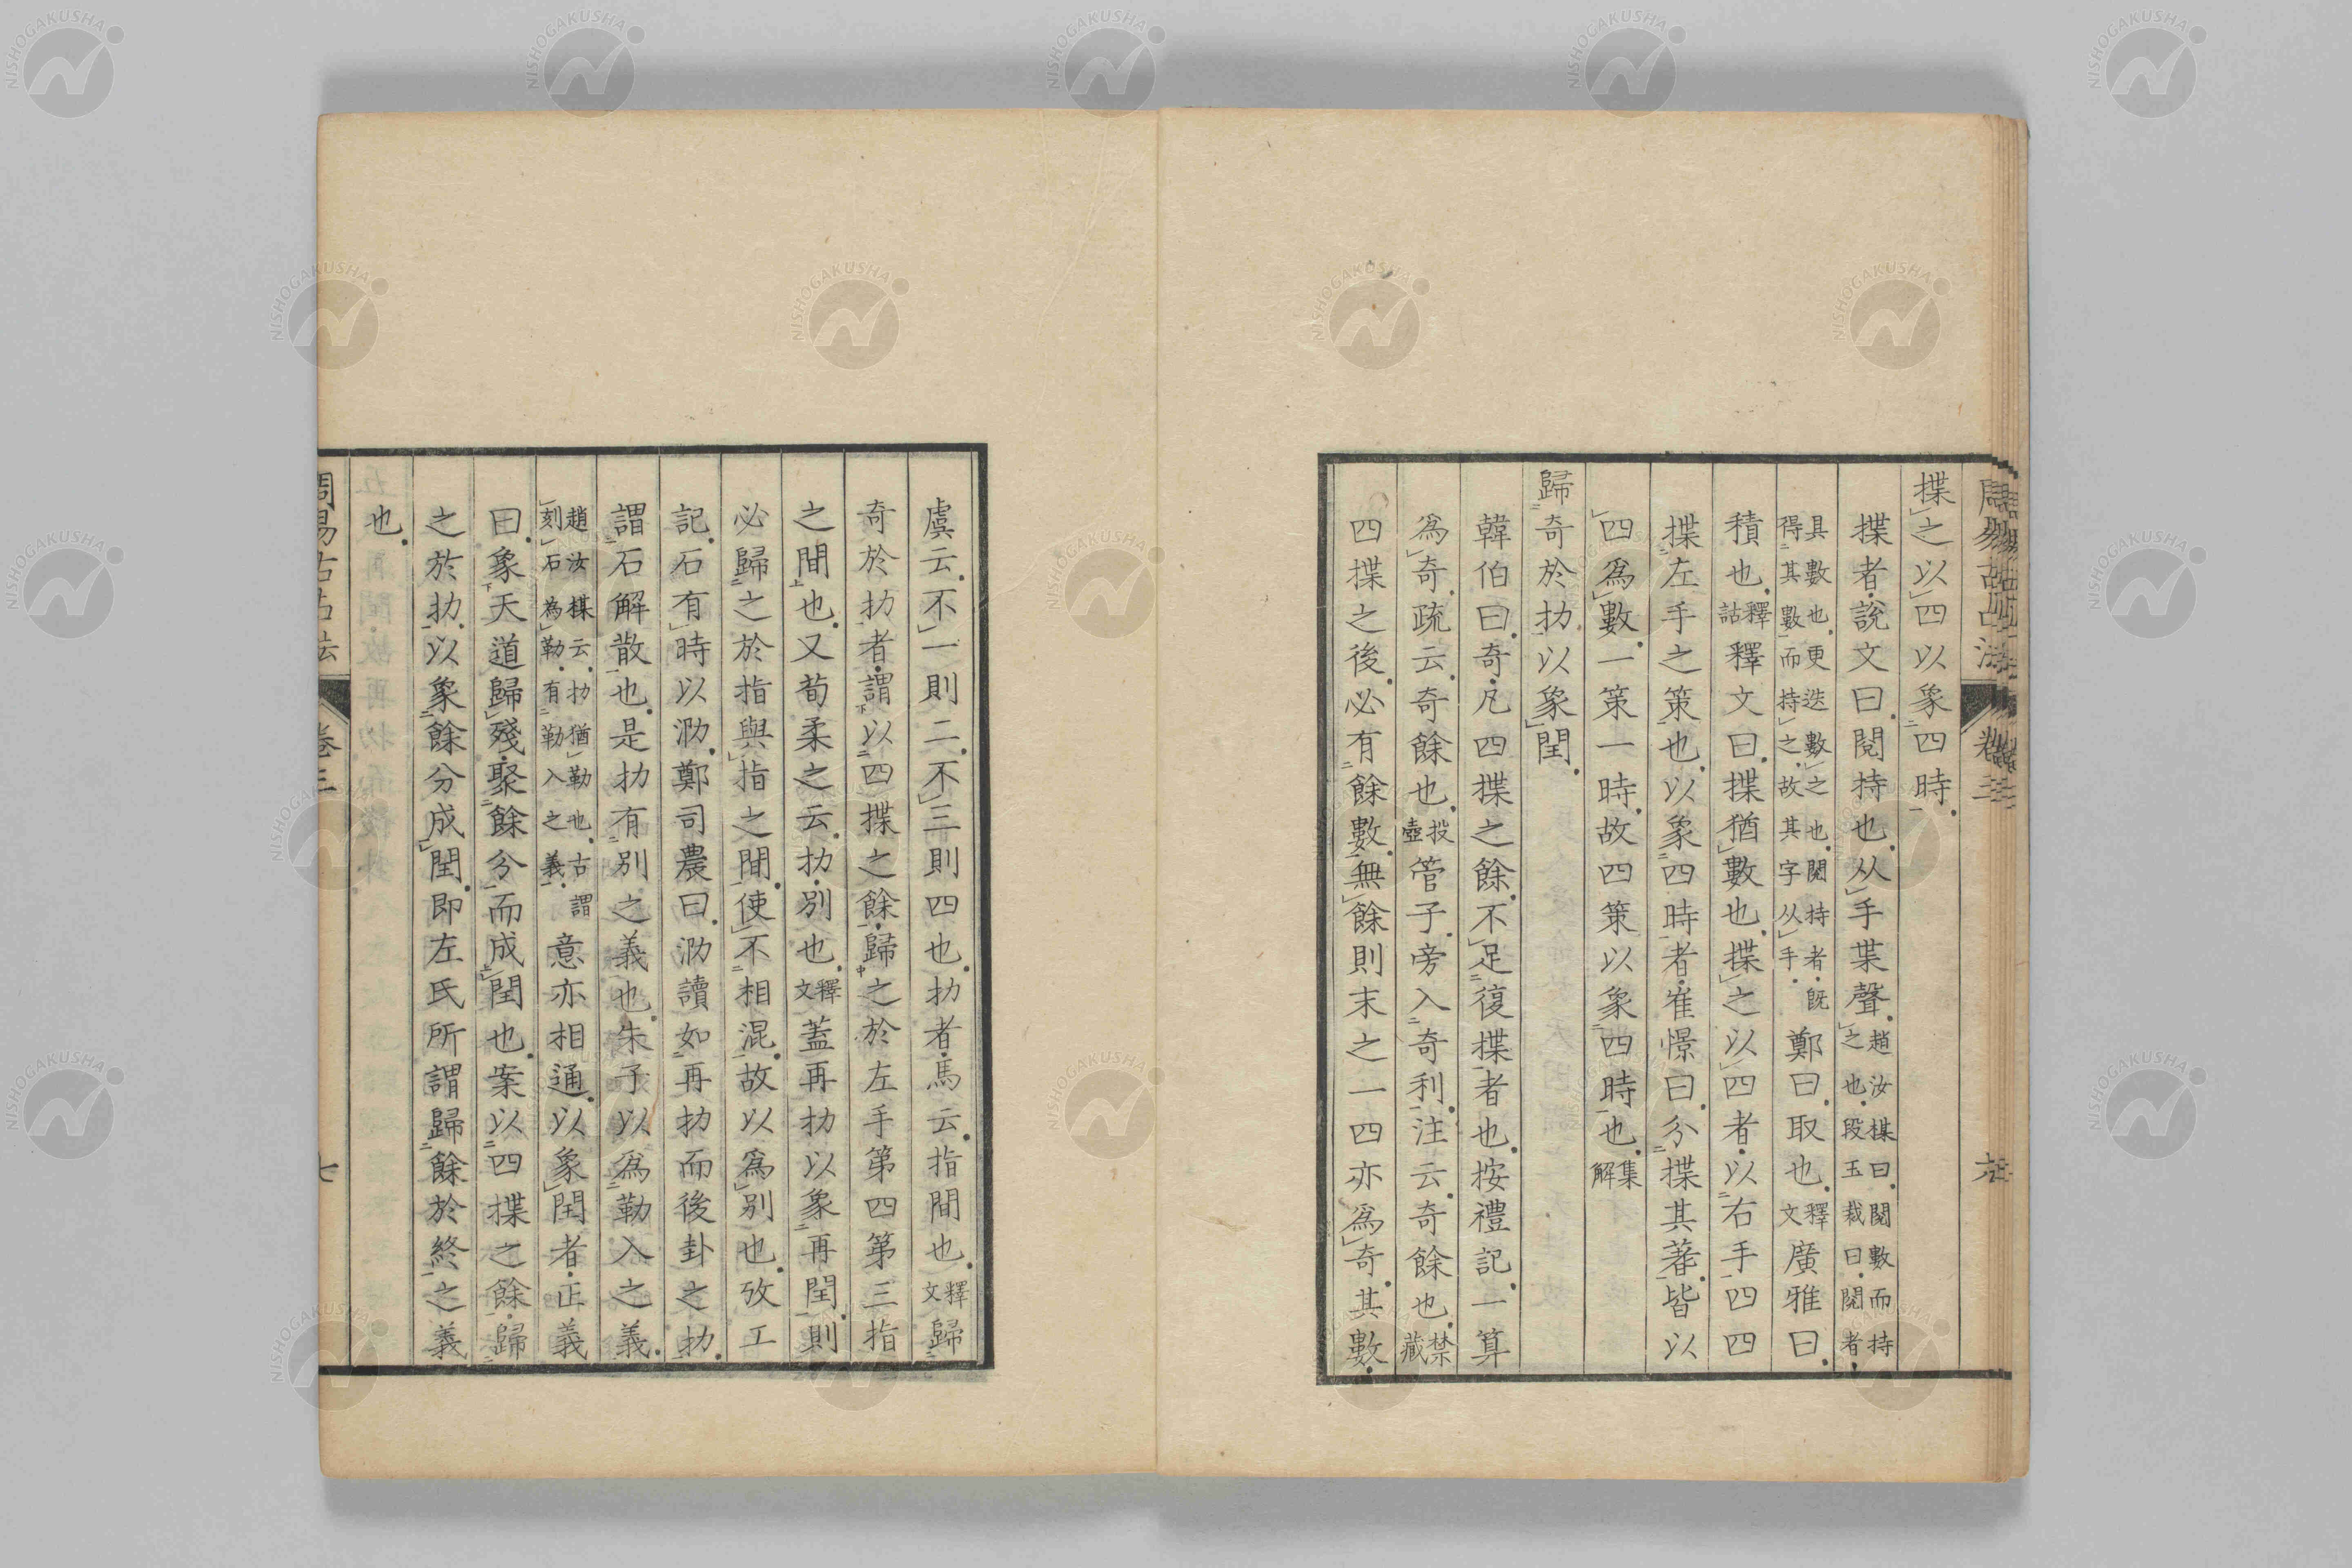 揲之以四以象四時
揲者說文曰閱持也从手枼聲趙汝楳曰閱數而持之也段玉裁曰閱者
具數也更迭數之也閱持者既得其數而持之故其字从手鄭曰取也釋文廣雅曰
積也釋詁釋文曰揲猶數也揲之以四者以右手四四
揲左手之策也以象四時者崔憬曰分揲其蓍皆以
四爲數一策一時故四策以象四時也集解
歸奇於扐以象閏
韓伯曰奇凡四揲之餘不足復揲者也按禮記一算
爲奇疏云奇餘也投壺管子旁入奇利注云奇餘也禁藏
四揲之後必有餘數無餘則末之一四亦爲奇其數
虞云不一則二不三則四也扐者馬云指間也釋文歸
奇於扐者謂以四揲之餘歸之於左手第四第三指
之間也又荀柔之云扐別也釋文蓋再扐以象再閏則
必歸之於指與指之間使不相混故以爲別也攷工
記石有時以泐鄭司農曰泐讀如再扐而後卦之扐
謂石解散也是扐有別之義也朱子以爲勒入之義
趙汝楳云扐猶勒也古謂刻石為勒有勒入之義意亦相通以象閏者正義
曰象天道歸殘聚餘分而成閏也案以四揲之餘歸
之於扐以象餘分成閏即左氏所謂歸餘於終之義
也
周易古占法
卷三
七